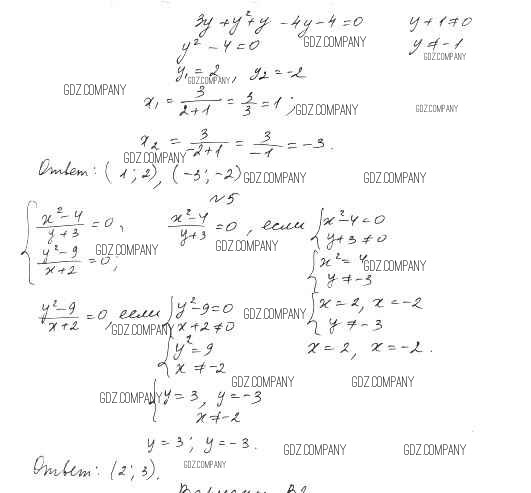 3y + y² + y - 4y - 4 = 0     y + 1 ≠ 0
y² - 4 = 0     GDZ.COMPANY     y ≠ -1
GDZ.COMPANY
y₁ = 2, y₂ = -2
GDZ.COMPANY
GDZ.COMPANY
x₁ = 3/(2+1) = 3/3 = 1; GDZ.COMPANY     GDZ.COMPANY
x₂ = 3/(-2+1) = 3/(-1) = -3.
GDZ.COMPANY
Ответ: (1; 2), (-3; -2) GDZ.COMPANY     GDZ.COMPANY
№5
{ (x²-4)/(y+3) = 0,     (x²-4)/(y+3) = 0, если { x² - 4 = 0
(y²-9)/(x+2) = 0;     y + 3 ≠ 0
GDZ.COMPANY     GDZ.COMPANY
{ x² = 4     GDZ.COMPANY
y ≠ -3
(y²-9)/(x+2) = 0, если { y² - 9 = 0     GDZ.COMPANY     { x = 2, x = -2
GDZ.COMPANY     x + 2 ≠ 0     y ≠ -3
{ y² = 9     x = 2, x = -2.
x ≠ -2
GDZ.COMPANY     GDZ.COMPANY
GDZ.COMPANY { y = 3, y = -3
x ≠ -2
y = 3; y = -3.     GDZ.COMPANY     GDZ.COMPANY
Ответ: (2; 3).     GDZ.COMPANY